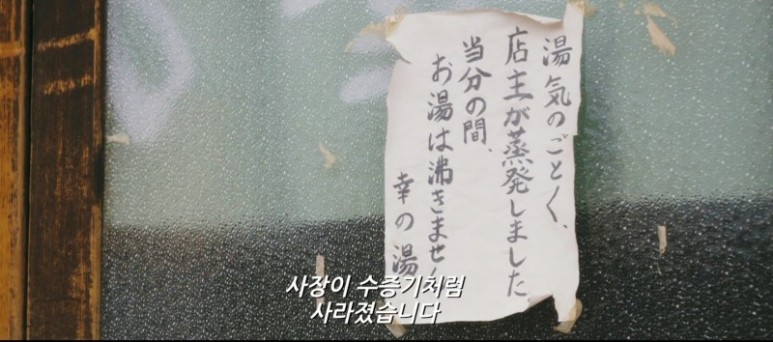 湯気のごとく、
店主が蒸発しました。
当分の間、
お湯は沸きません
幸の湯
사장이 수증기처럼
사라졌습니다